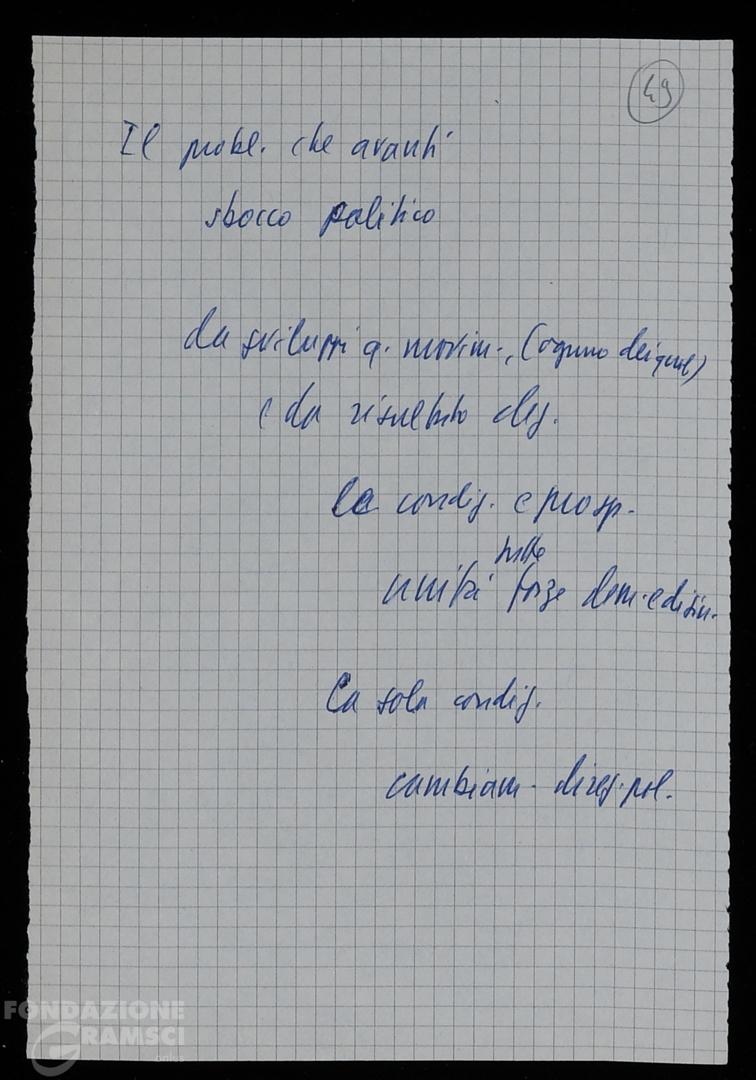 49
Il probl. che avanti
sbocco politico
da sviluppi q. movim., (ognuno dei quali)
e da risultato elez.
la condiz. e prosp.
tutte
unità forze dem. e di sin.
La sola condiz.
cambiam. direz. pol.
FONDAZIONE
GRAMSCI
onlus